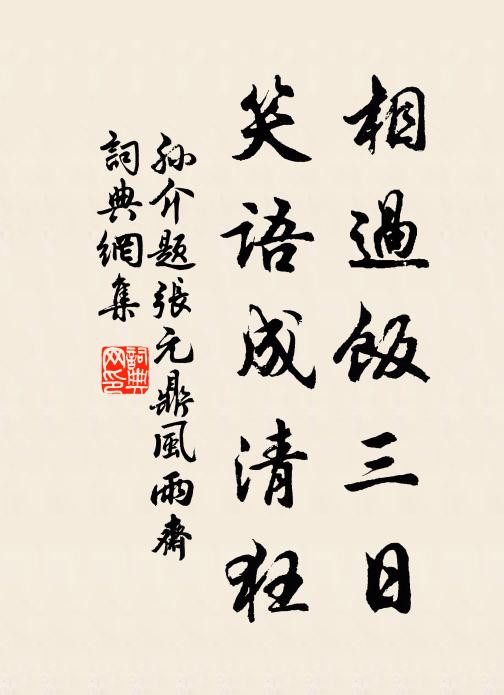 相過飯三日
笑語成清狂
孙介题張元鼎風雨齋
詞典網集
詞典
网印